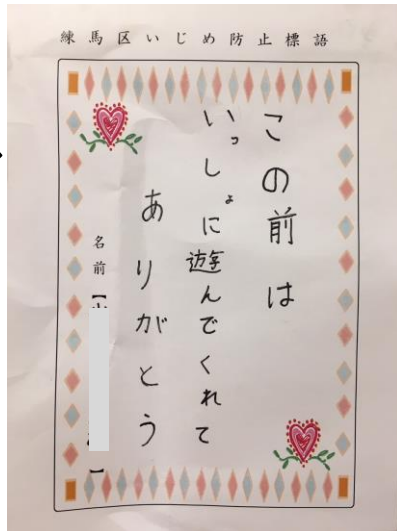 練馬区いじめ防止標語
この前は
いっしょに遊んでくれて
ありがとう
名前【 】